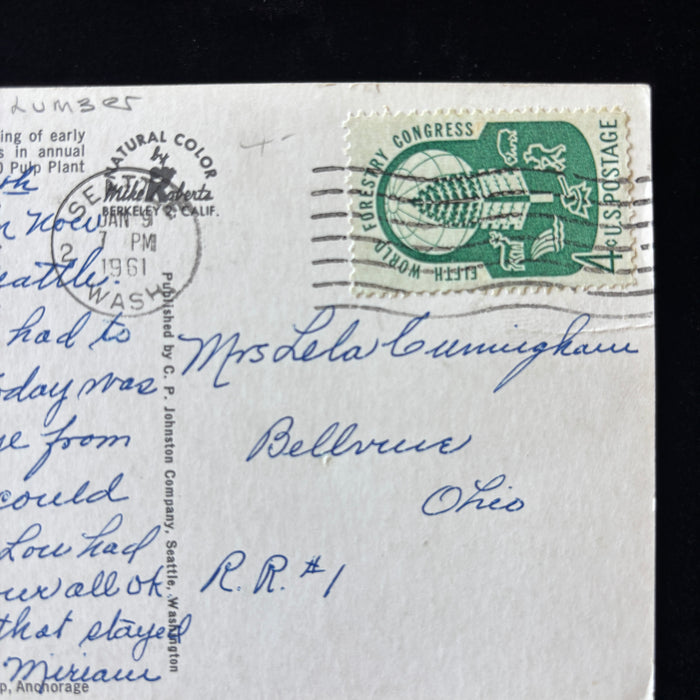 Lumber
ing of early
s in annual
0 Pulp Plant
NATURAL COLOR
by
Mike Roberts
BERKELEY 2, CALIF.
SEATTLE
JAN 9
7 PM
1961
2
WASH.
FIFTH WORLD FORESTRY CONGRESS
4c U.S. POSTAGE
th
n now
eattle.
had to
oday was
e from
could
Lou had
our all ok.
that stayed
Miriam
p, Anchorage
Published by C. P. Johnston Company, Seattle, Washington
Mrs Lela Cunningham
Bellvue
Ohio
R.R. #1